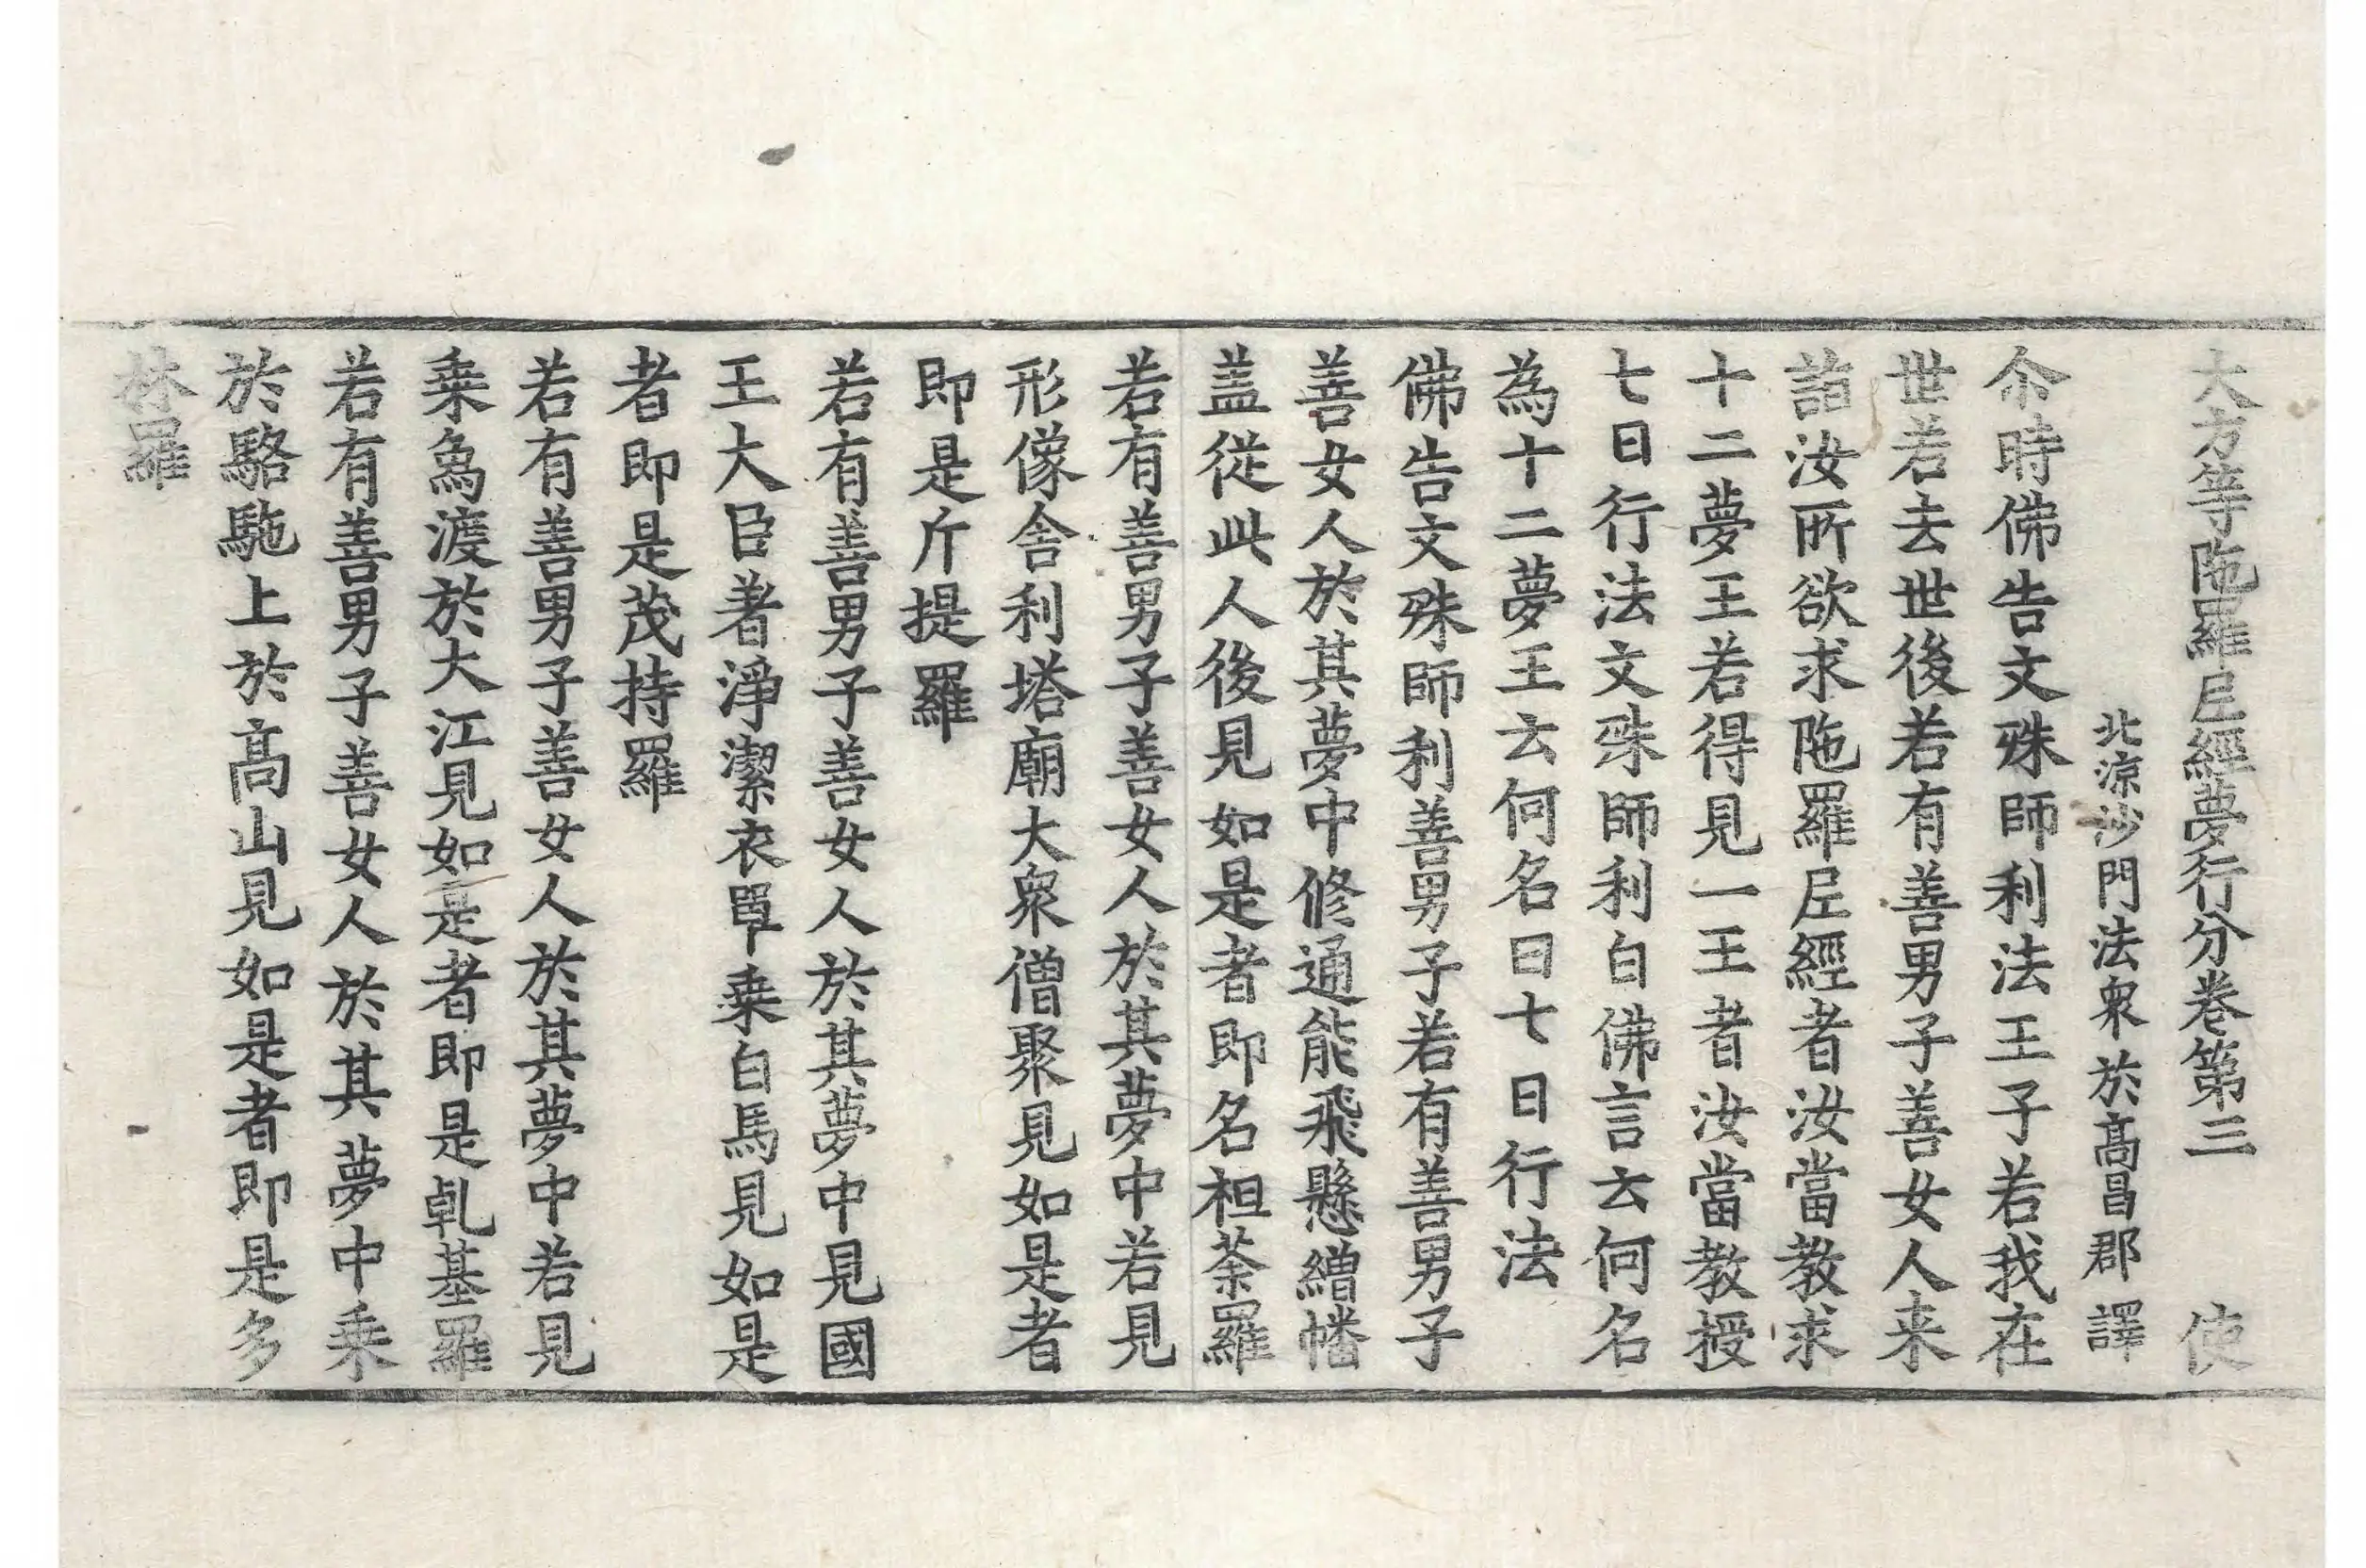 大方等陁羅𡰱經夢行分卷第三　使
北涼沙門法衆於高昌郡譯
尒時佛告文殊師利法王子若我在
世若去世後若有善男子善女人来
詣汝所欲求陁羅𡰱經者汝當教求
十二夢王若得見一王者汝當教授
七日行法文殊師利白佛言云何名
為十二夢王云何名曰七日行法
佛告文殊師利善男子若有善男子
善女人於其夢中修通能飛懸繒幡
盖從此人後見如是者即名袒荼羅
若有善男子善女人於其夢中若見
形像舍利塔廟大衆僧聚見如是者
即是斤提羅
若有善男子善女人於其夢中見國
王大臣著淨潔衣單乗白馬見如是
者即是茂持羅
若有善男子善女人於其夢中若見
乗象渡於大江見如是者即是乹基羅
若有善男子善女人於其夢中乗
於駱駞上於高山見如是者即是多
林羅